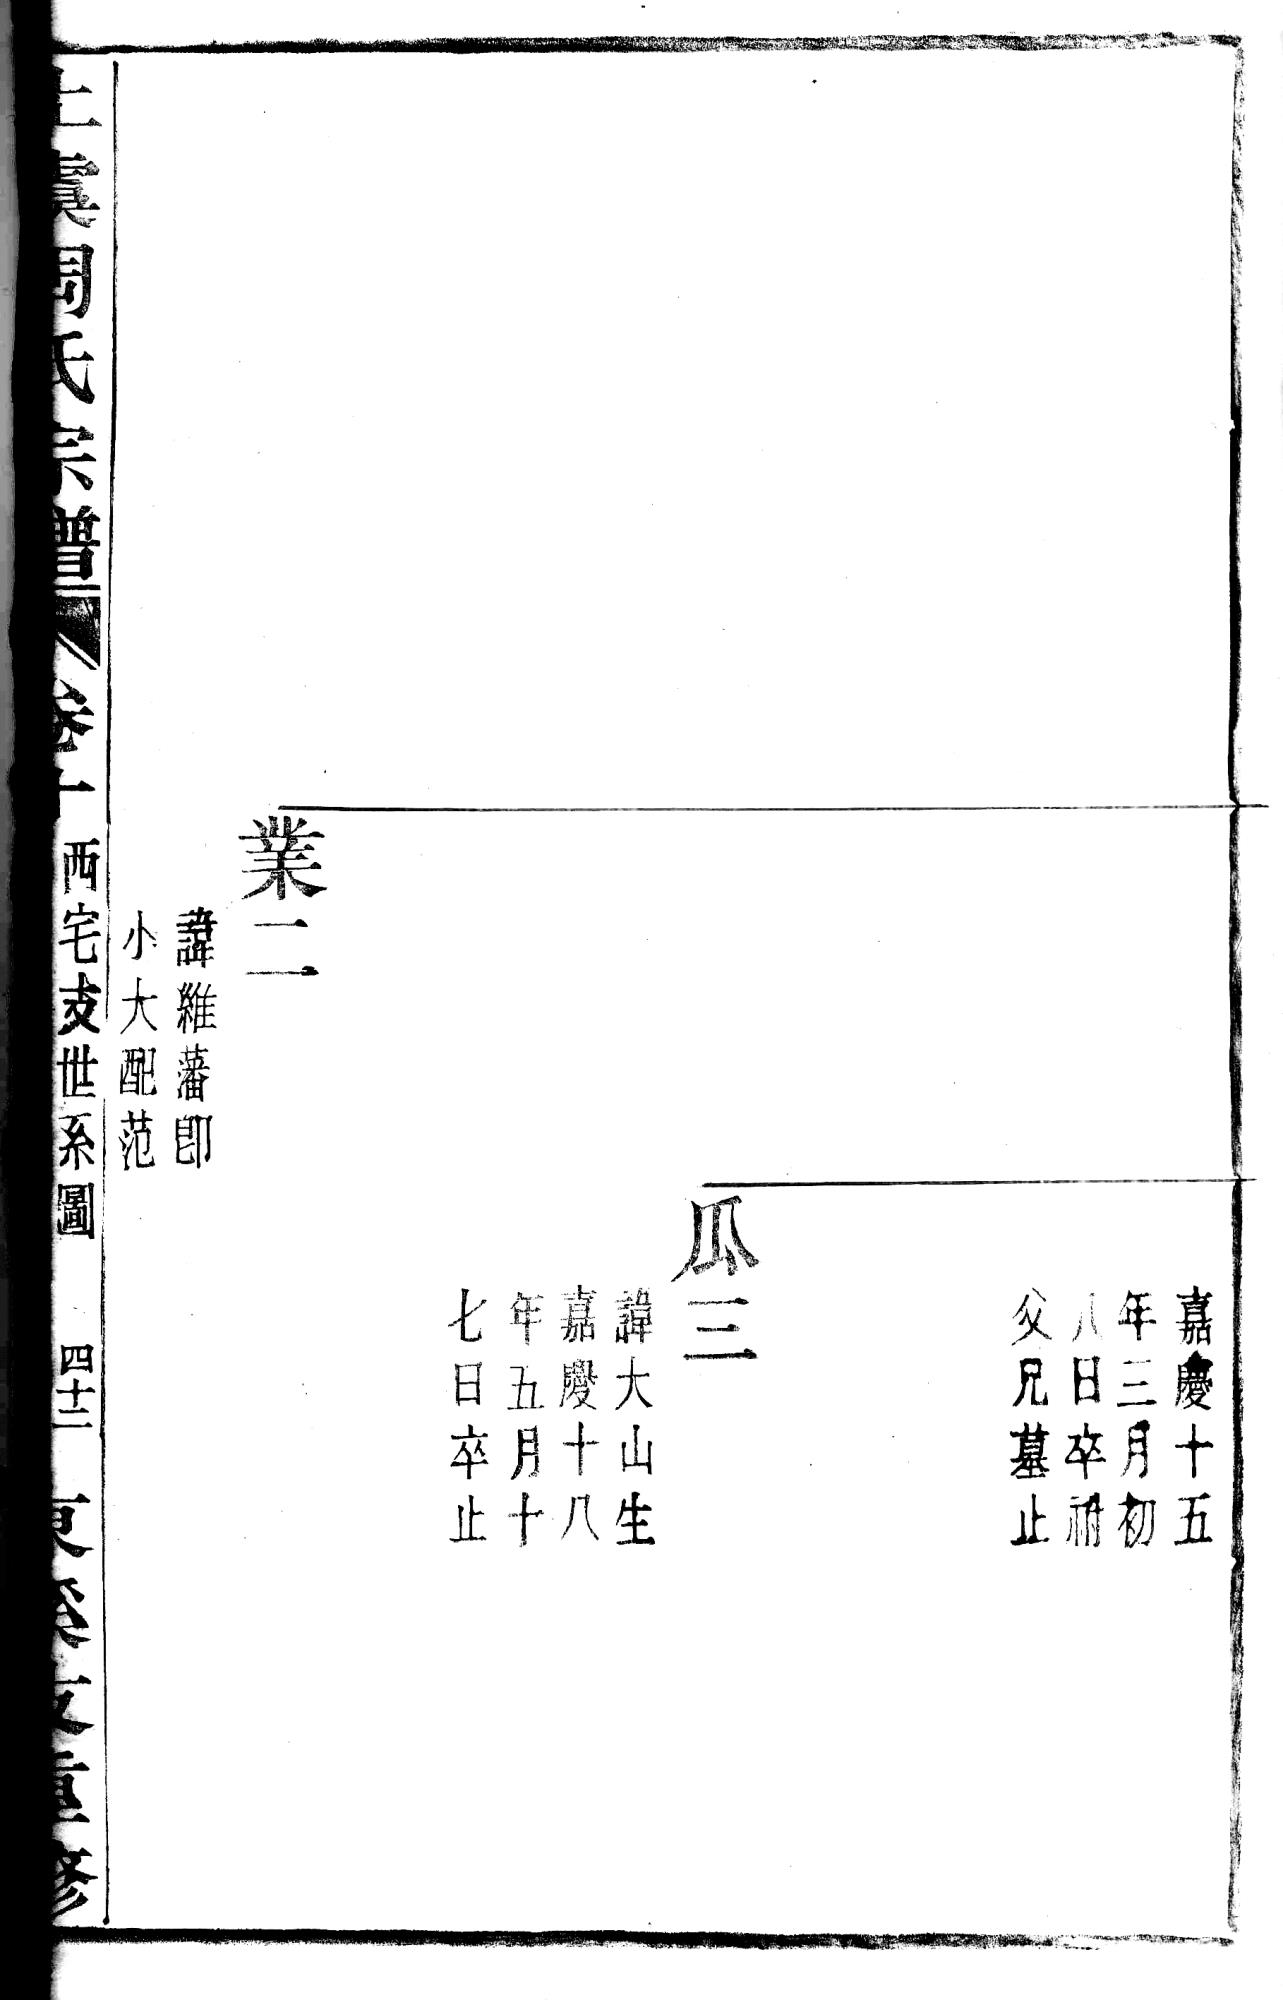 嘉慶十五
年三月初
八日卒祔
父兄墓止
瓜三
諱大山生
嘉慶十八
年五月十
七日卒止
業二
諱維藩卽
小大配范
上虞周氏宗譜
卷十
西宅支世系圖
四十二
重修